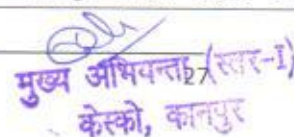 27
मुख्य अभियन्ता (स्तर-I)
केस्को, कानपुर